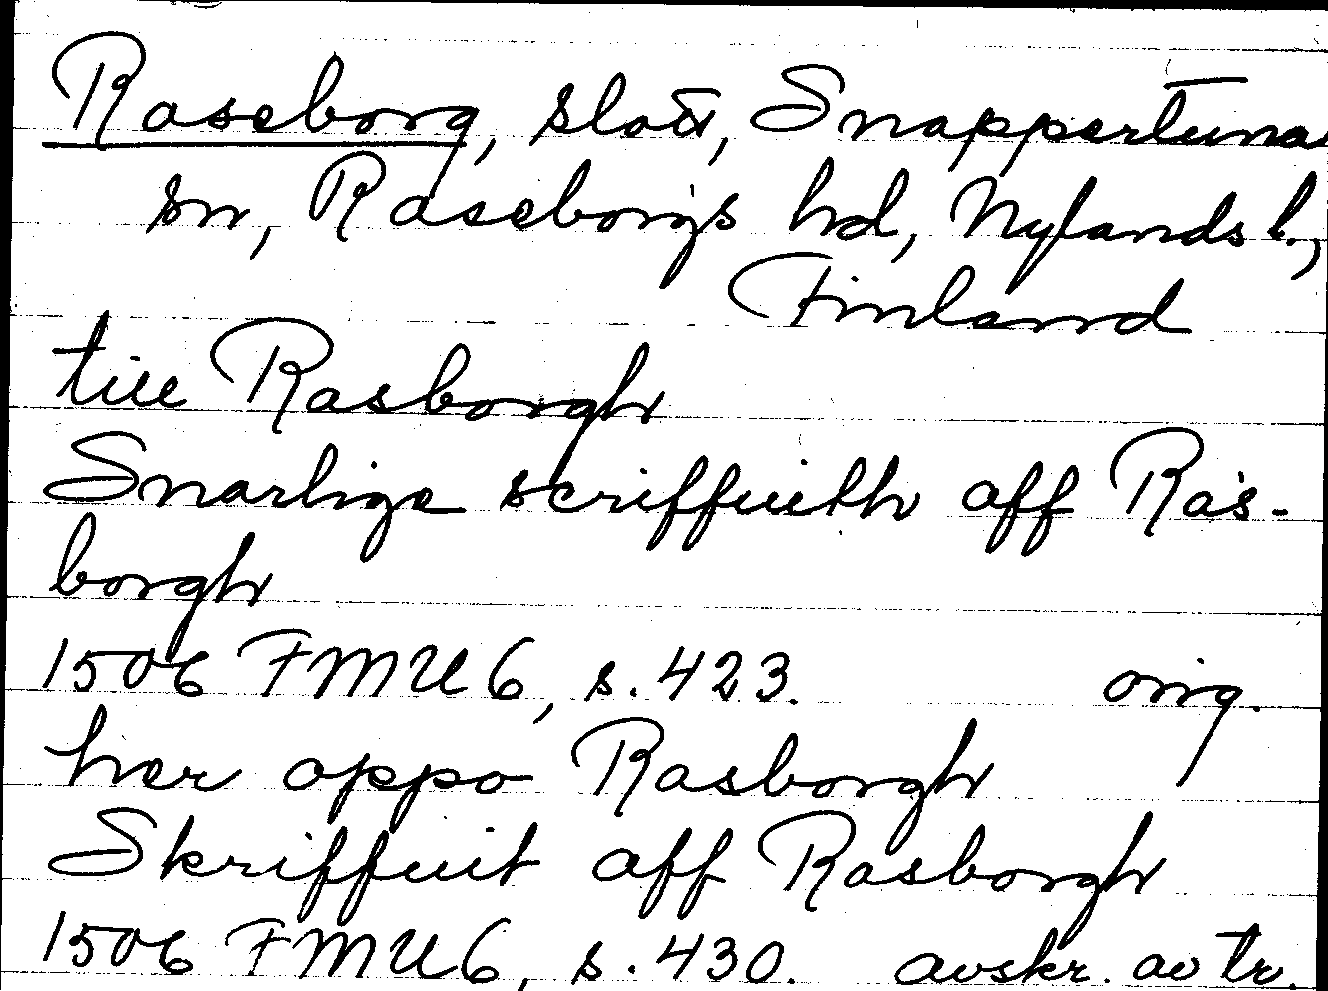 Raseborg, slott, Snappertuna
sn, Raseborgs hd, Nylands l.,
Finland
till Rasborgh
Snarlige scriffuith aff Ras-
borgh
1506 FMU 6, s. 423. orig.
her oppo Rasborgh
Skriffuit aff Rasborgh
1506 FMU 6, s. 430. avskr. av tr.